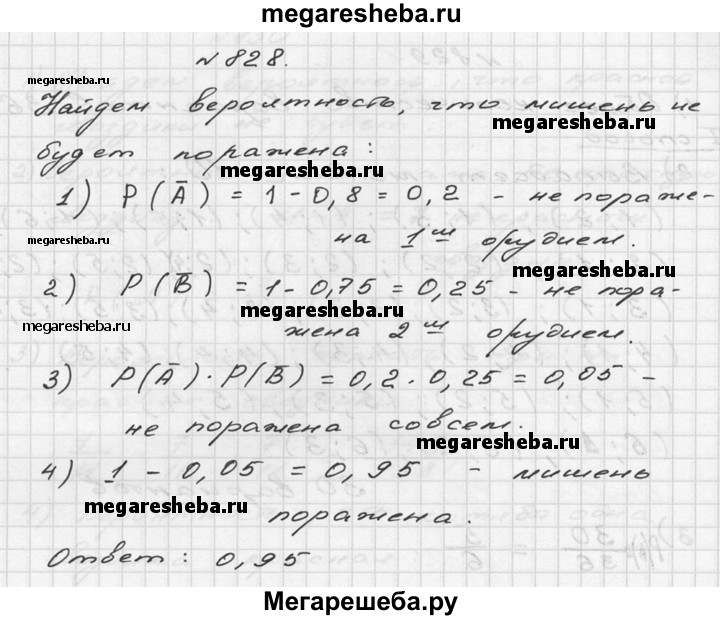 megaresheba.ru
№828.
megaresheba.ru
Найдем вероятность, что мишень не
megaresheba.ru
будет поражена:
megaresheba.ru
1) P(Ā) = 1 - 0,8 = 0,2 - не пораже-
megaresheba.ru
на 1ым орудием.
megaresheba.ru
2) P(B̄) = 1 - 0,75 = 0,25 - не пора-
megaresheba.ru
megaresheba.ru
жена 2ым орудием.
3) P(Ā) · P(B̄) = 0,2 · 0,25 = 0,05 -
не поражена совсем.
megaresheba.ru
4) 1 - 0,05 = 0,95 - мишень
megaresheba.ru
поражена.
Ответ: 0,95
Мегарешеба.ру